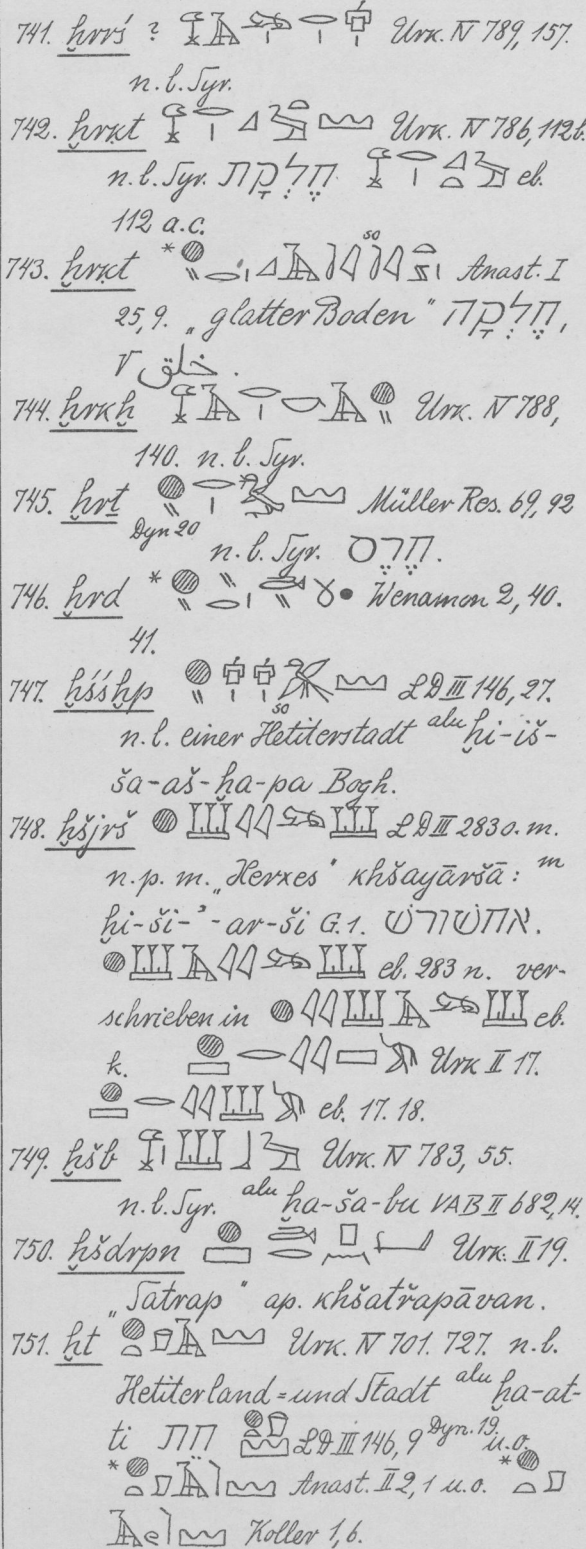 741. ḫrrś ? Urk. IV 789, 157.
n. l. Syr.
742. ḫrḳt Urk. IV 786, 112b.
n. l. Syr. חֶלְקָת eb.
112 a. c.
743. ḫrḳt * so Anast. I
25, 9. „glatter Boden“ חֶלְקָה,
√ خلق.
744. ḫrkḫ Urk. IV 788,
140. n. l. Syr.
745. ḫrṯ Müller Res. 69, 92
Dyn 20 n. l. Syr. חֶרֶס.
746. ḫrd * Wenamon 2, 40.
41.
747. ḫśśḫp so LD III 146, 27.
n. l. einer Hetiterstadt alu ḫi-iš-
ša-aš-ḫa-pa Bogh.
748. ḫšjrš LD III 283 o. m.
n. p. m. „Xerxes“ khšayāršā: m
ḫi-ši-ʾ-ar-ši G. 1. אחשורש.
eb. 283 n. ver-
schrieben in eb.
k. Urk II 17.
eb. 17. 18.
749. ḫšb Urk. IV 783, 55.
n. l. Syr. alu ḫa-ša-bu VAB II 682, 14.
750. ḫšdrpn Urk. II 19.
„Satrap“ ap. khšatřapāvan.
751. ḫt Urk. IV 701. 727. n. l.
Hetiterland=und Stadt alu ḫa-at-
ti חת LD III 146, 9 Dyn. 19. u. o.
* Anast. II 2, 1 u. o. *
Koller 1, 6.